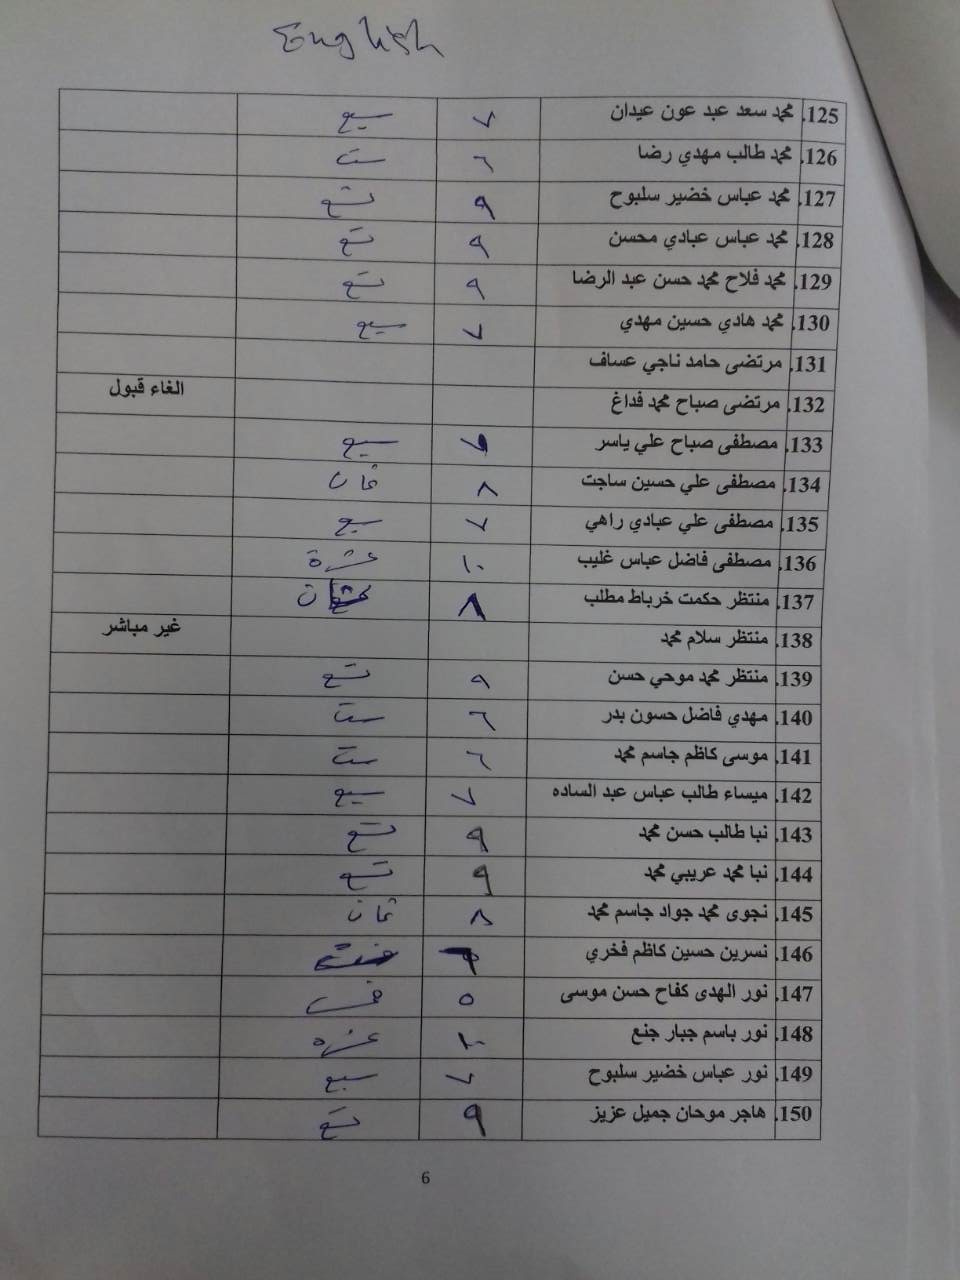 English
125. محمد سعد عبد عون عيدان ٧ سبع
126. محمد طالب مهدي رضا ٦ ست
127. محمد عباس خضير سلبوح ٩ تسع
128. محمد عباس عبادي محسن ٩ تسع
129. محمد فلاح محمد حسن عبد الرضا ٩ تسع
130. محمد هادي حسين مهدي ٧ سبع
131. مرتضى حامد ناجي عساف
132. مرتضى صباح محمد فداغ الغاء قبول
133. مصطفى صباح علي ياسر ٧ سبع
134. مصطفى علي حسين ساجت ٨ ثمان
135. مصطفى علي عبادي راهي ٧ سبع
136. مصطفى فاضل عباس غليب ١٠ عشرة
137. منتظر حكمت خرباط مطلب ٨ ثمان
138. منتظر سلام محمد غير مباشر
139. منتظر محمد موحي حسن ٩ تسع
140. مهدي فاضل حسون بدر ٦ ست
141. موسى كاظم جاسم محمد ٦ ست
142. ميساء طالب عباس عبد الساده ٧ سبع
143. نبا طالب حسن محمد ٩ تسع
144. نبا محمد عريبي محمد ٩ تسع
145. نجوى محمد جواد جاسم محمد ٨ ثمان
146. نسرين حسين كاظم فخري ٦
147. نور الهدى كفاح حسن موسى ٥ خمس
148. نور باسم جبار جنع ١٠ عشره
149. نور عباس خضير سلبوح ٧ سبع
150. هاجر موحان جميل عزيز ٩ تسع
6